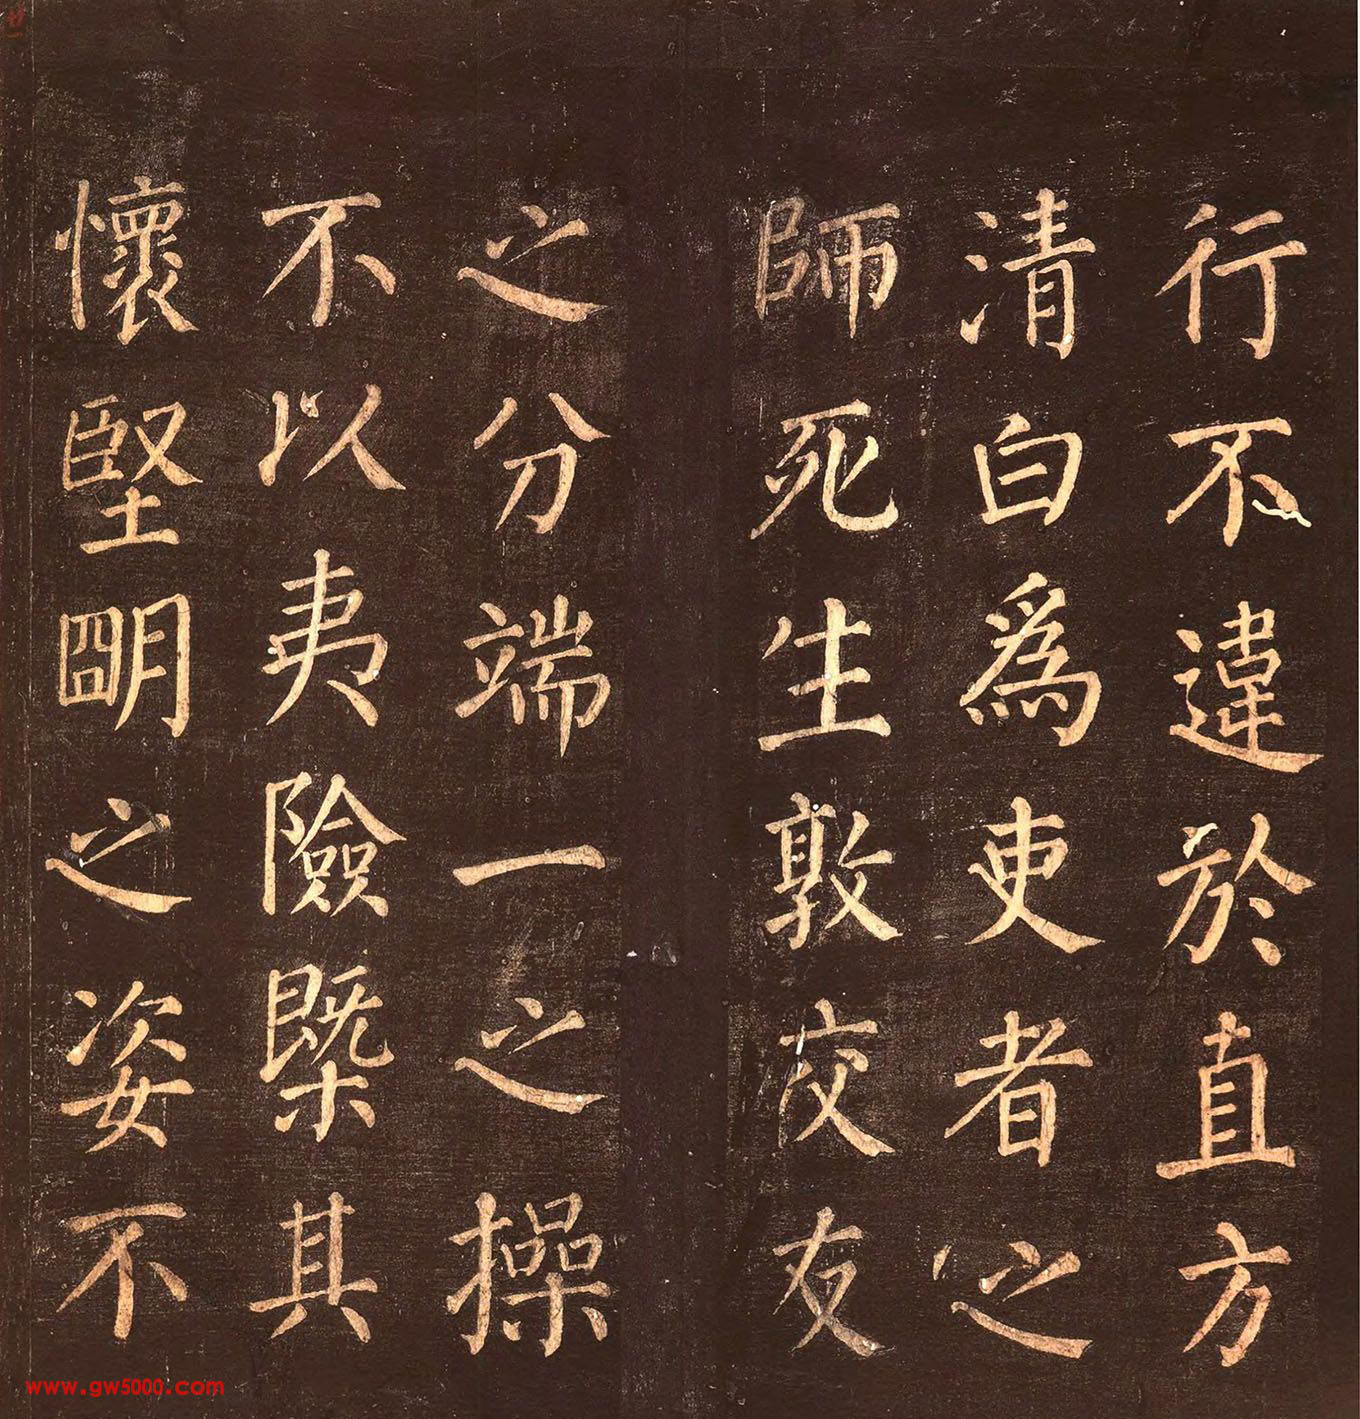 行不違於直方
清白為吏者之
師死生敦交友
之分端一之操
不以夷險槩其
懷堅明之姿不
www.gw5000.com